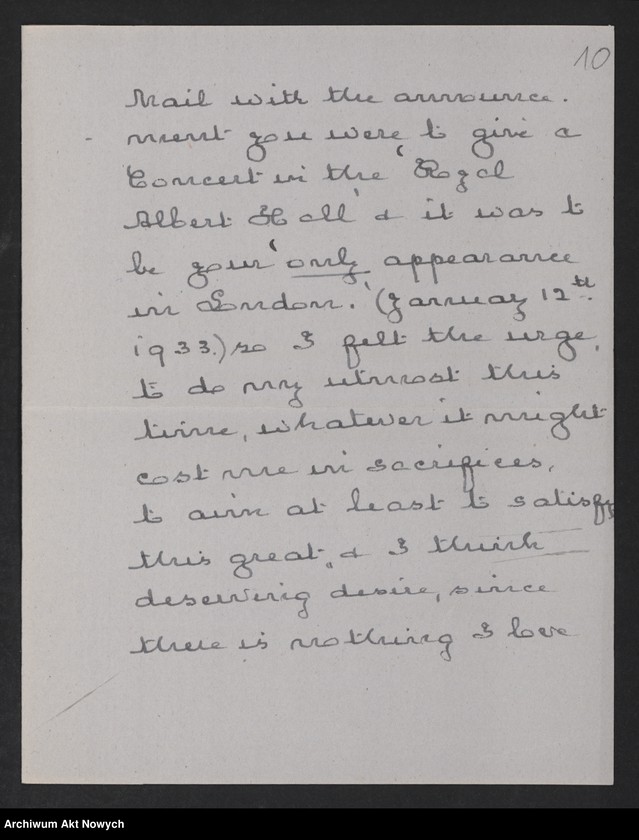 10
Mail with the announce.
- ment you were to give a
Concert in the 'Royal
Albert Hall' & it was to
be your 'only appearance
in London.' (January 12th.
1933.) so I felt the urge,
to do my utmost this
time, whatever it might
cost me in sacrifices,
to aim at least to satisfy
this great, & I think
deserving desire, since
there is nothing I love
Archiwum Akt Nowych